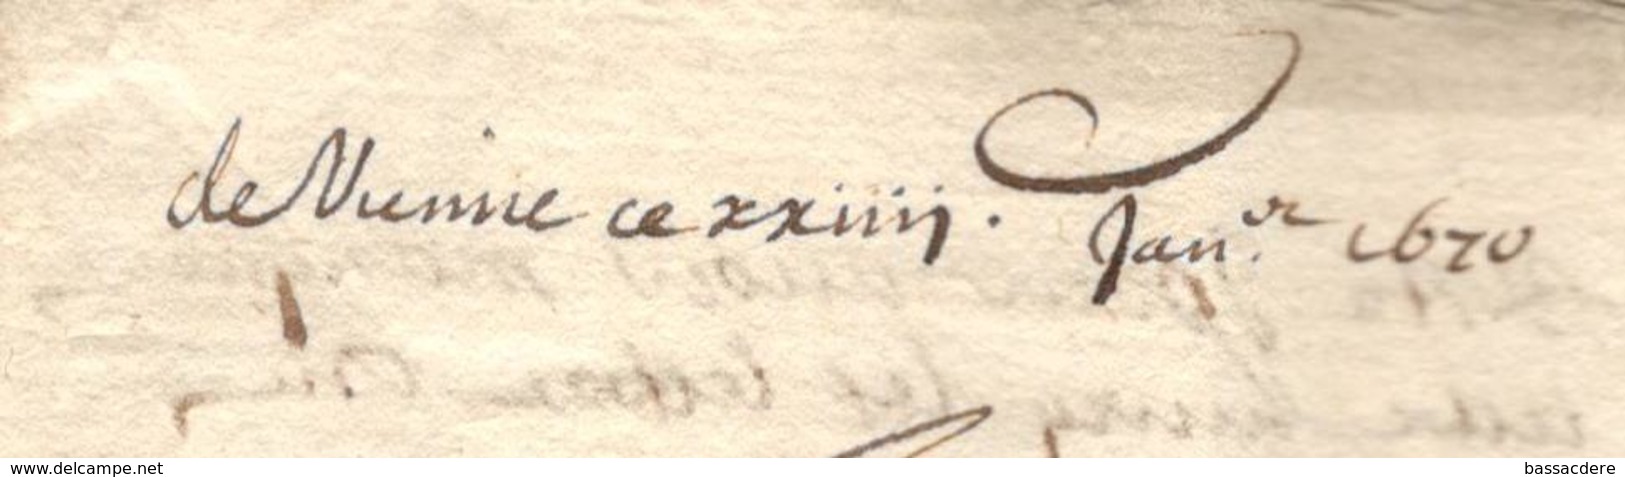 de Vienne ce xxiiij. Jan.er 1670
www.delcampe.net
bassacdere